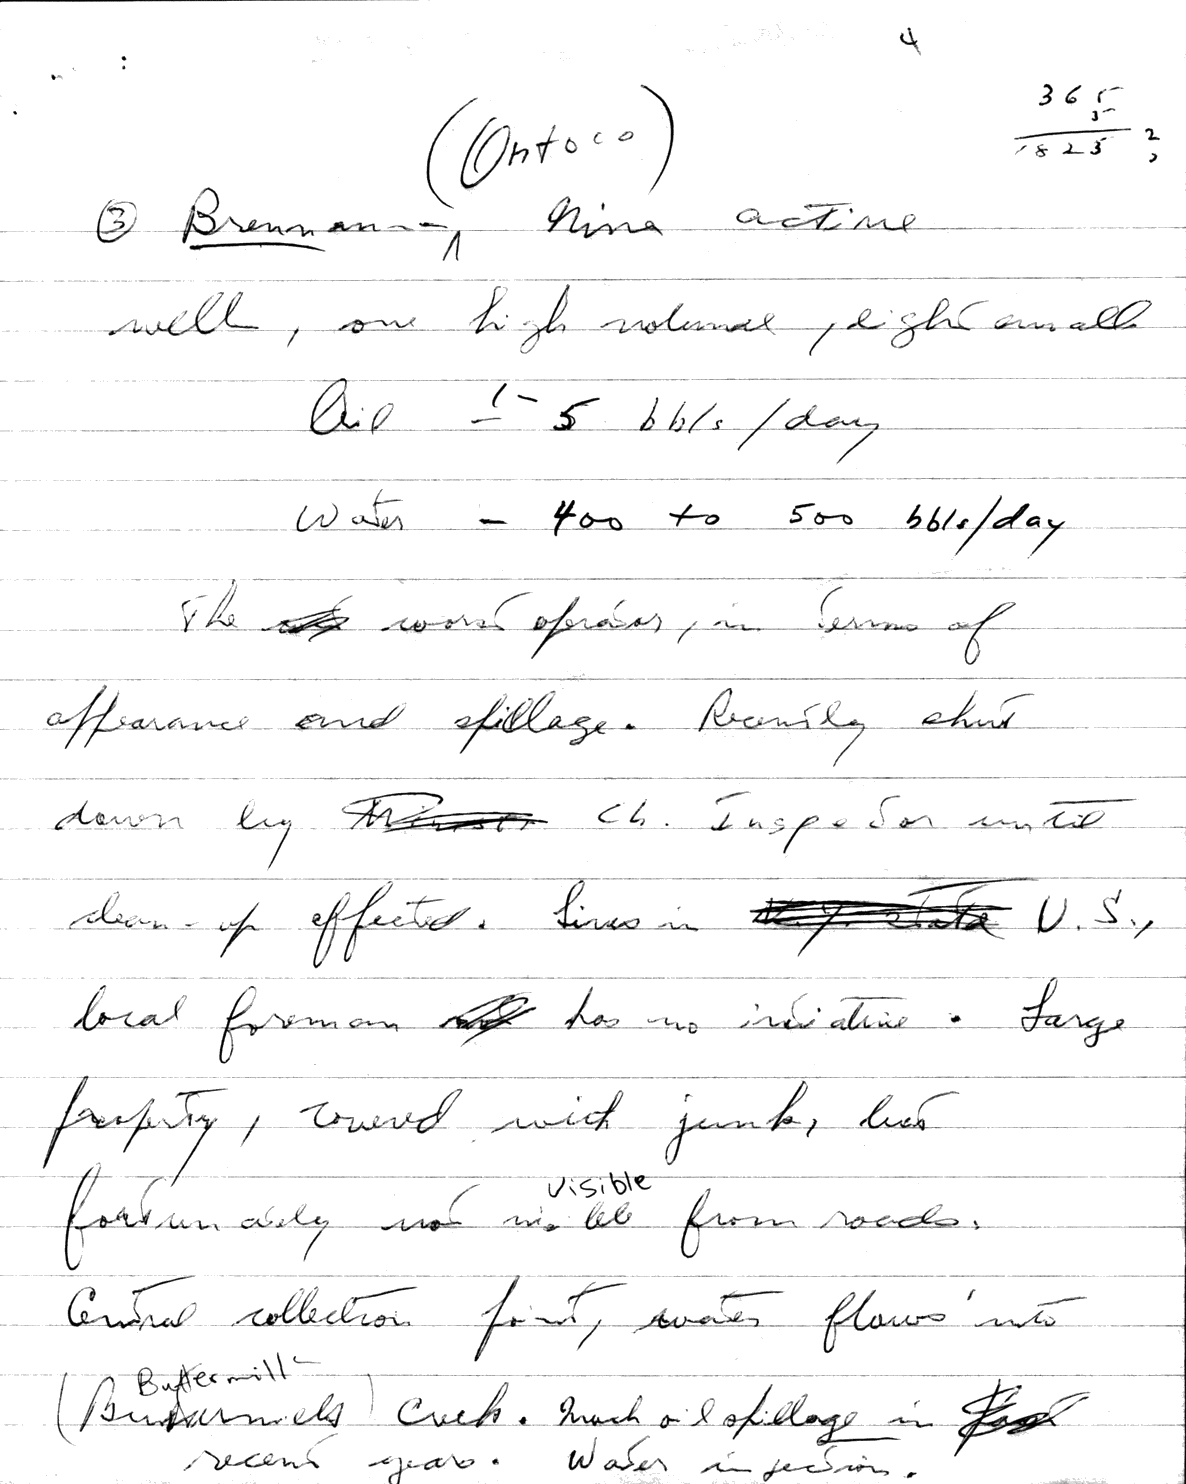 4
365
5
1825
(Ontoco)
③ Brennan - Nine active
well, one high volume, eight small
Oil ± 5 bbls/day
Water - 400 to 500 bbls/day
The worst operator, in terms of
appearance and spillage. Recently shut
down by Ch. Inspector until
clean-up effected. Lives in U.S.,
local foreman has no initiative. Large
property, covered with junk, but
visible
fortunately not visible from roads.
Central collection point, water flows into
Buttermilk
( ) Creek. Much oil spillage in
recent years. Water injection.